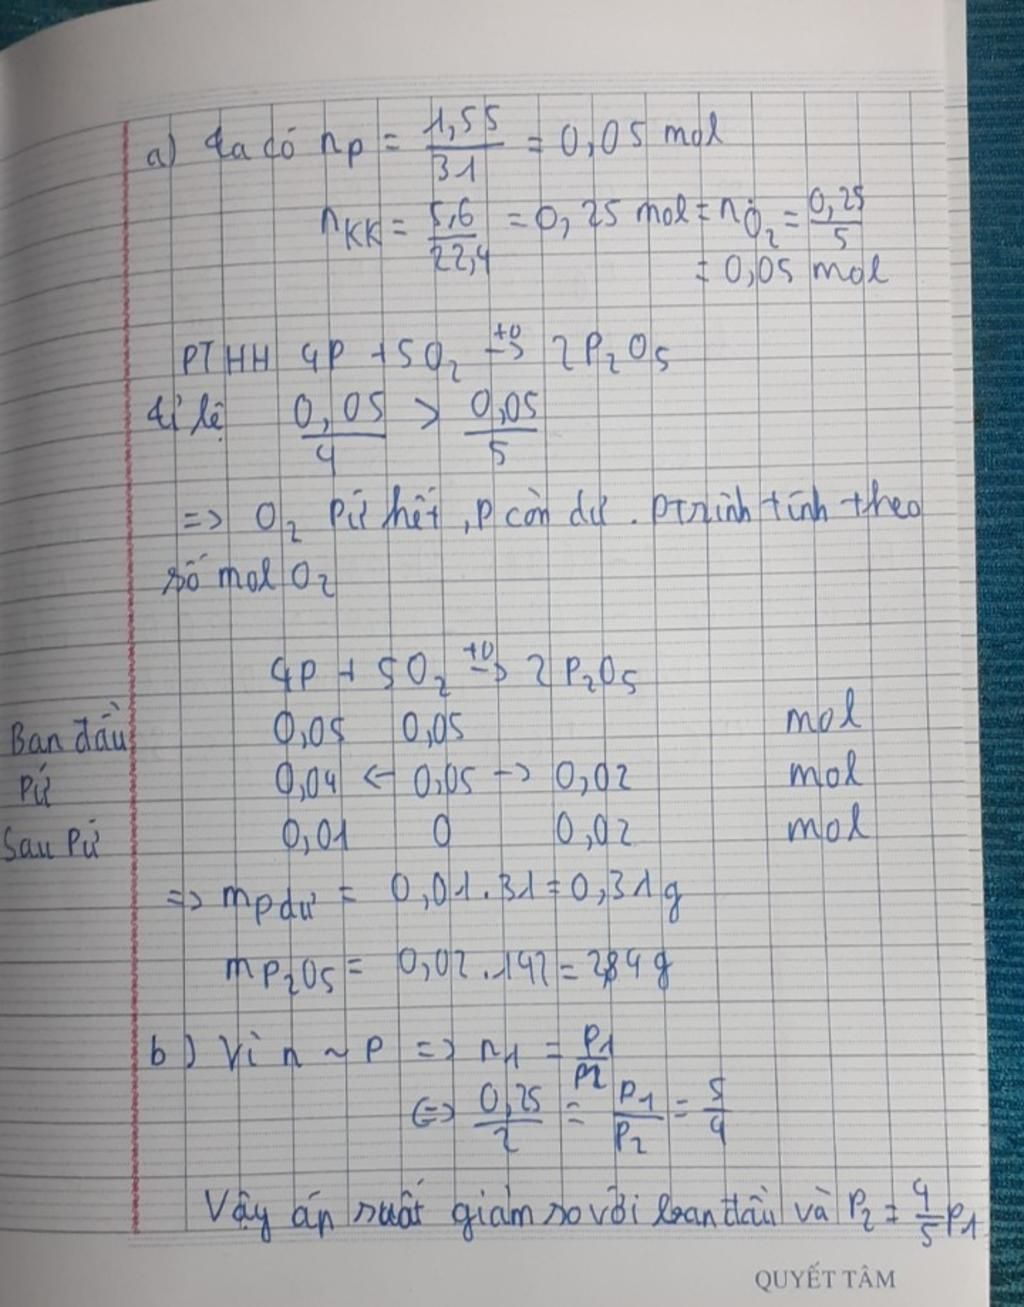 a) ta có nP = 1,55/31 = 0,05 mol
nKK = 5,6/22,4 = 0,25 mol = nO2 = 0,25/5
= 0,05 mol
PTHH 4P + 5O2 t0→ 2P2O5
tỉ lệ 0,05/4 > 0,05/5
=> O2 Pứ hết, P còn dư. Ptrình tính theo
số mol O2
4P + 5O2 t0→ 2P2O5
Ban đầu 0,05 0,05 mol
Pứ 0,04 ← 0,05 → 0,02 mol
Sau Pứ 0,01 0 0,02 mol
=> mP dư = 0,01.31 = 0,31g
mP2O5 = 0,02.142 = 2,84g
b) Vì n ~ P => n1 = P1/P2
<=> 0,25/2 = P1/P2 = 5/4
Vậy áp suất giảm so với ban đầu và P2 = 4/5 P1
QUYẾT TÂM